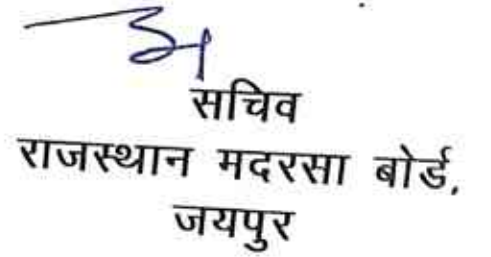 सचिव
राजस्थान मदरसा बोर्ड,
जयपुर